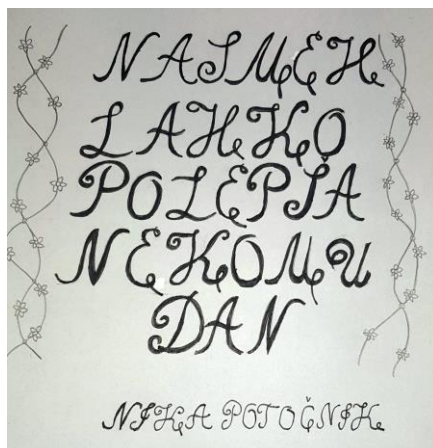 NASMEH
LAHKO
POLEPŠA
NEKOMU
DAN
NIKA POTOČNIK